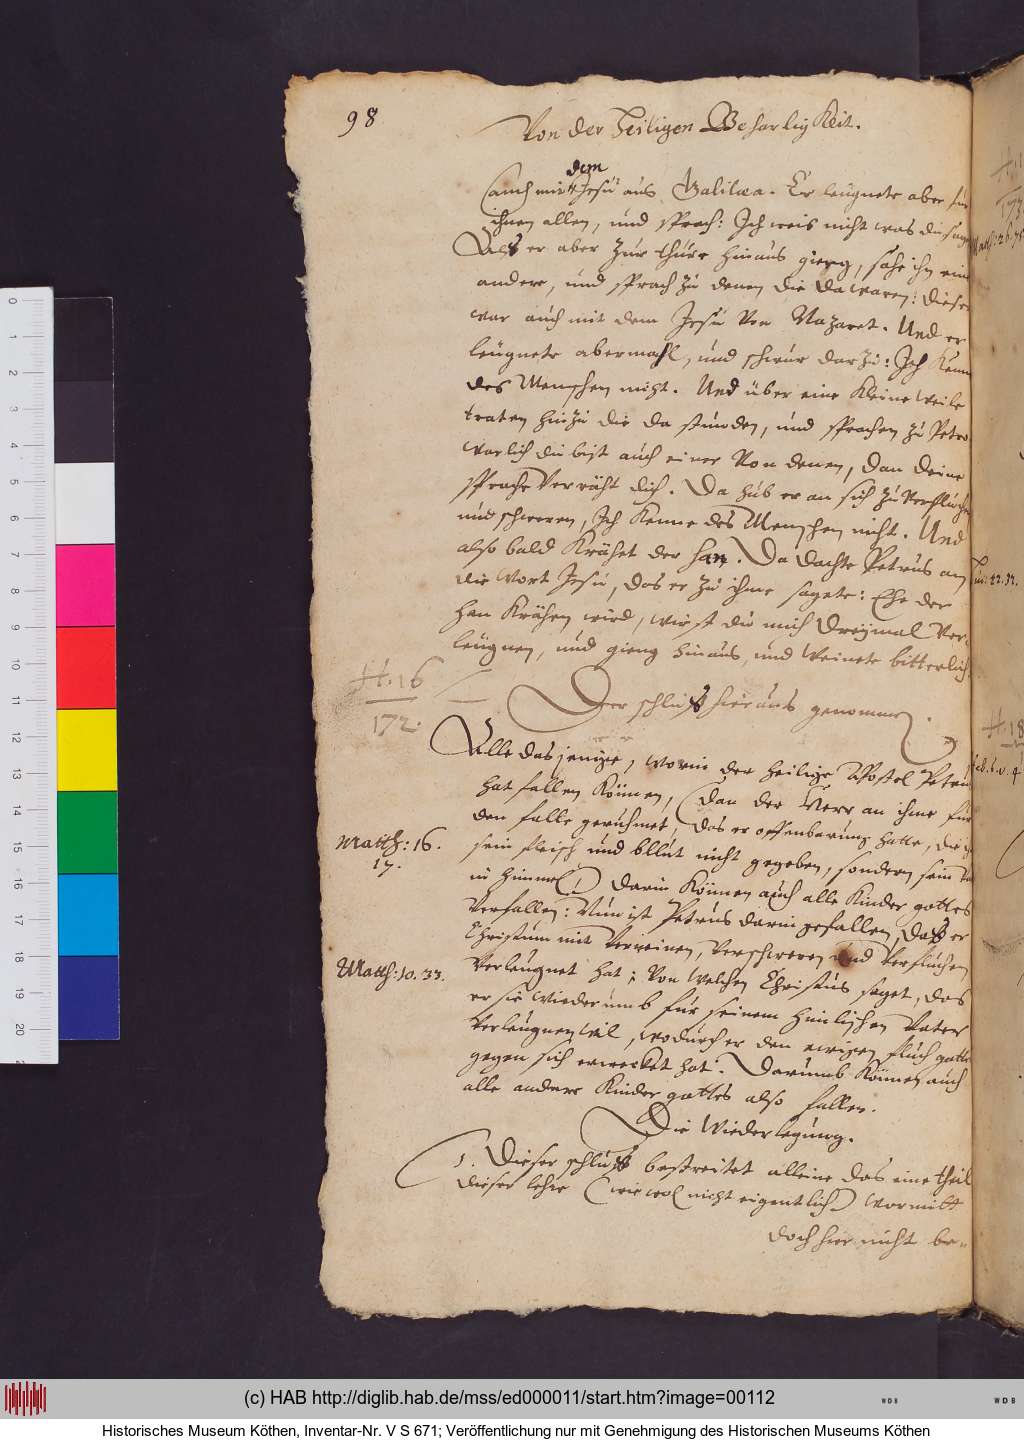 98
Von der Heiligen Beharligkeit.
dem
auch mit Jesu aus Galilaea. Er leugnete aber für
ihnen allen, und sprach: Ich weis nicht was du sagest
Als er aber zur thüre hinaus gieng, sahe ihn eine
andere, und sprach zu denen die da waren: dieser
war auch mit dem Jesu von Nazaret. Und er
leugnete abermahl, und schwur darzu: Ich Kenne
des Menschen nicht. Und über eine Kleine weile
traten hinzu die da stunden, und sprachen zu Petro
warlich du bist auch einer von denen, dan deine
sprache verräht dich. Da hub er an sich zu verfluchen
und schweren, Ich Kenne des Menschen nicht. Und
also bald Krähet der han. Da dachte Petrus an
die wort Jesu, das er zu ihme sagete: Ehe der
han Krähen wird, wirst du mich dreymal ver-
leugnen, und gieng hinaus, und weinete bitterlich.
H. 16
172.
Der schluß hieraus genommen.
Alle das jenige, worin der heilige Apostel Petrus
hat fallen Können, (dan der Herr an ihme für
den falle gerühmet, das er offenbarung hatte, die ihm
Matth: 16.
17.
sein fleisch und bllut nicht gegeben, sondern sein Vater
in himmel) darin Können auch alle Kinder gottes
verfallen: Nun ist Petrus darin gefallen, daß er
Christum mit verneinen, verschweren und verfluchen
Matth: 10. 33.
verleugnet hat; von welchen Christus saget, das
er sie wiederumb für seinem himlischen Vater
verleugnen wil, wodurch er den ewigen fluch gottes
gegen sich erwecket hat. Darumb Können auch
alle andere Kinder gottes also fallen.
Die Wiederlegung.
1. Dieser schluß bestreitet alleine das eine theil
dieser lehre (wiewol nicht eigentlich) womitt
doch hier nicht be-
Matth: 26. 75
Luc: 22. 32.
H. 18
(c) HAB http://diglib.hab.de/mss/ed000011/start.htm?image=00112
WDB
WDB
Historisches Museum Köthen, Inventar-Nr. V S 671; Veröffentlichung nur mit Genehmigung des Historischen Museums Köthen